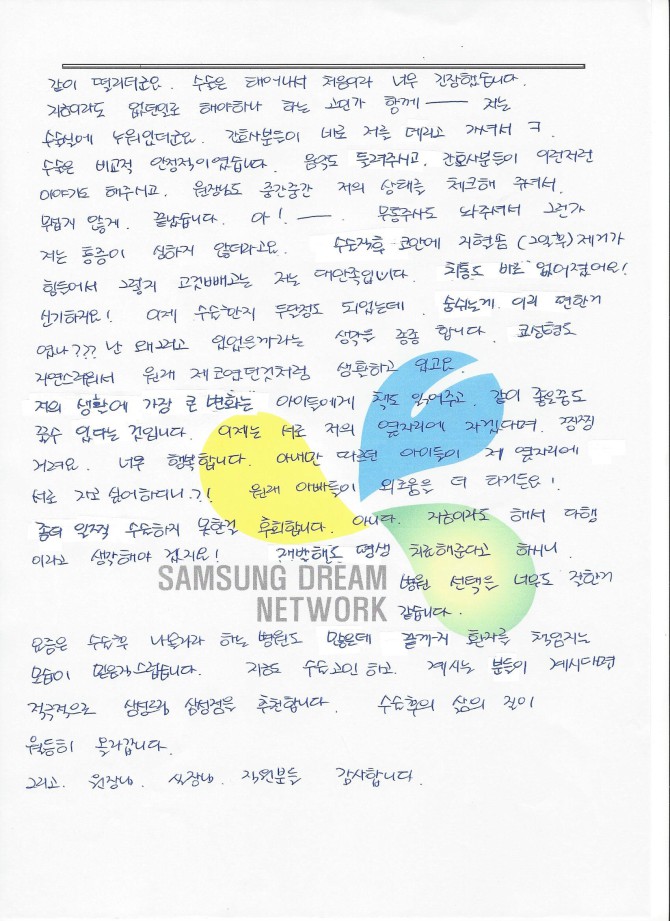 같이 떨리더군요. 수술은 태어나서 처음이라 너무 긴장했습니다.
지금이라도 없던일로 해야하나 하는 고민과 함께 ── 저는
수술실에 누워있더군요. 간호사분들이 바로 저를 데리고 가셔서 ㅋ
수술은 비교적 안정적이였습니다. 음악도 들려주시고, 간호사분들이 이런저런
이야기도 해주시고, 원장님도 중간중간 저의 상태를 체크해 주셔서,
무섭지 않게. 끝났습니다. 아! ──. 무통주사도 놔주셔서 그런가
저는 통증이 심하지 않더라고요. 수술직후 코안에 지혈솜 (2일후) 제거가
힘들어서 그렇지 그것빼고는 저는 대만족입니다. 두통도 바로 없어졌어요!
신기하지요! 이제 수술한지 두달정도 되었는데, 숨쉬는게 이리 편한거
였나??? 난 왜그러고 있었을까라는 생각을 종종 합니다. 코성형도
자연스러워서 원래 제코였던것처럼 생활하고 있고요.
저의 생활에 가장 큰 변화는 아이들에게 책도 읽어주고, 같이 좋은꿈도
꿀수 있다는 것입니다. 이제는 서로 저의 옆자리에 자겠다며, 찡찡
거려요. 너무 행복합니다. 아내만 따르던 아이들이 제 옆자리에
서로 자고 싶어하다니.?! 원래 아빠들이 외로움을 더 타거든요!
좀더 일찍 수술하지 못한걸 후회합니다. 아니다. 지금이라도 해서 다행
이라고 생각해야 겠지요! 재발해도 평생 치료해준다고 하시니.
병원 선택은 너무도 잘한거
같습니다.
SAMSUNG DREAM
NETWORK
요즘은 수술후 나몰라라 하는 병원도 많은데 끝까지 환자를 책임지는
모습이 믿음직스럽습니다. 지금도 수술고민 하고, 계시는 분들이 계시다면
적극적으로 삼성드림 삼성점을 추천합니다. 수술후의 삶의 질이
월등히 올라갑니다.
그리고. 원장님. 실장님. 직원분들 감사합니다.